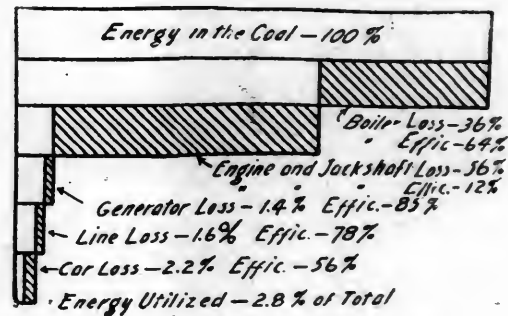 Energy in the Coal — 100%
Boiler Loss — 36%
" Effic — 64%
Engine and Jackshaft Loss — 56%
" " " Effic. — 12%
Generator Loss — 1.4% Effic. — 85%
Line Loss — 1.6% Effic. — 78%
Car Loss — 2.2% Effic. — 56%
Energy Utilized — 2.8% of Total